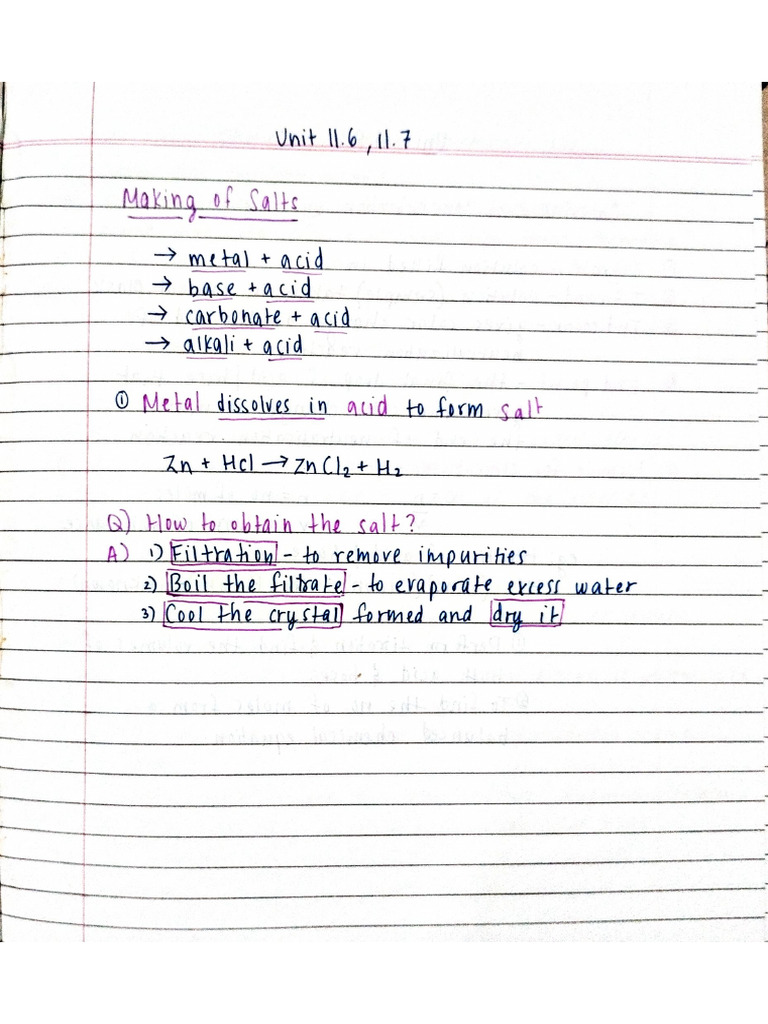 Unit 11.6, 11.7
Making of Salts
→ metal + acid
→ base + acid
→ carbonate + acid
→ alkali + acid
① Metal dissolves in acid to form salt
Zn + HCl → ZnCl₂ + H₂
Q) How to obtain the salt?
A) 1) Filtration - to remove impurities
2) Boil the filtrate - to evaporate excess water
3) Cool the crystal formed and dry it